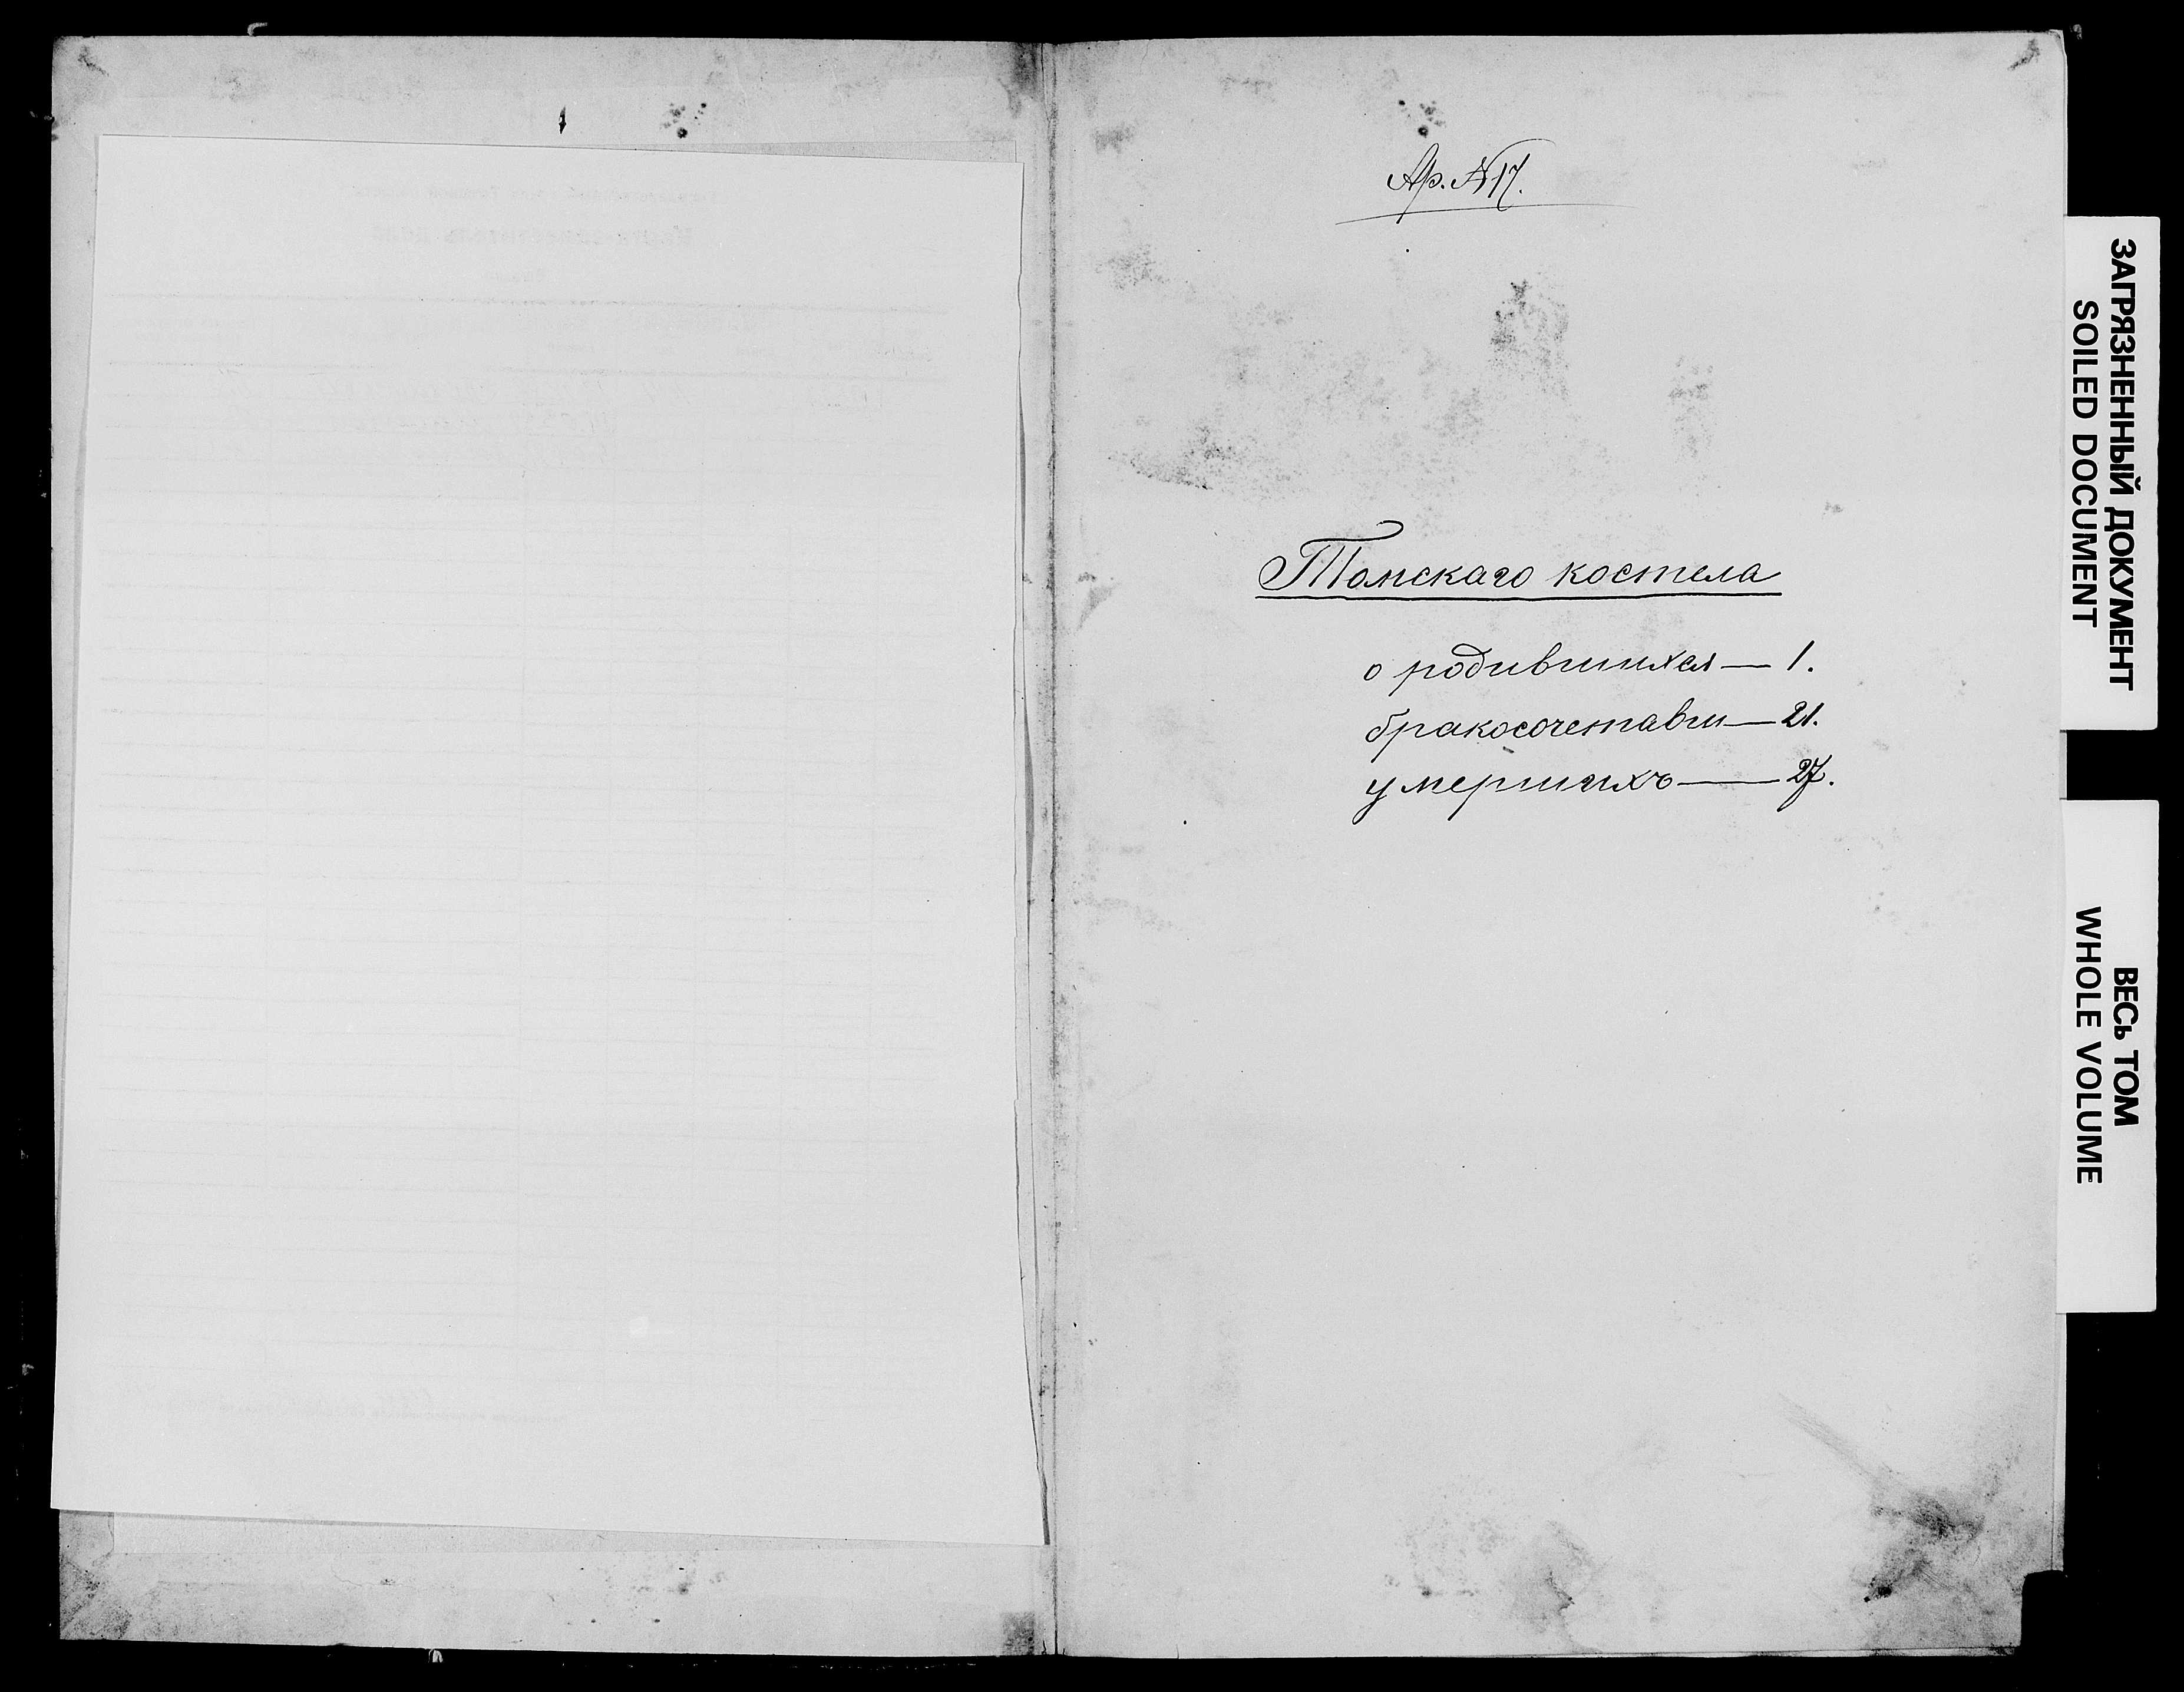 Ар. №17.
Томскаго костела
о родившихся — 1.
бракосочетавш — 21.
умершихъ — 27.
ЗАГРЯЗНЕННЫЙ ДОКУМЕНТ
SOILED DOCUMENT
ВЕСЬ ТОМ
WHOLE VOLUME